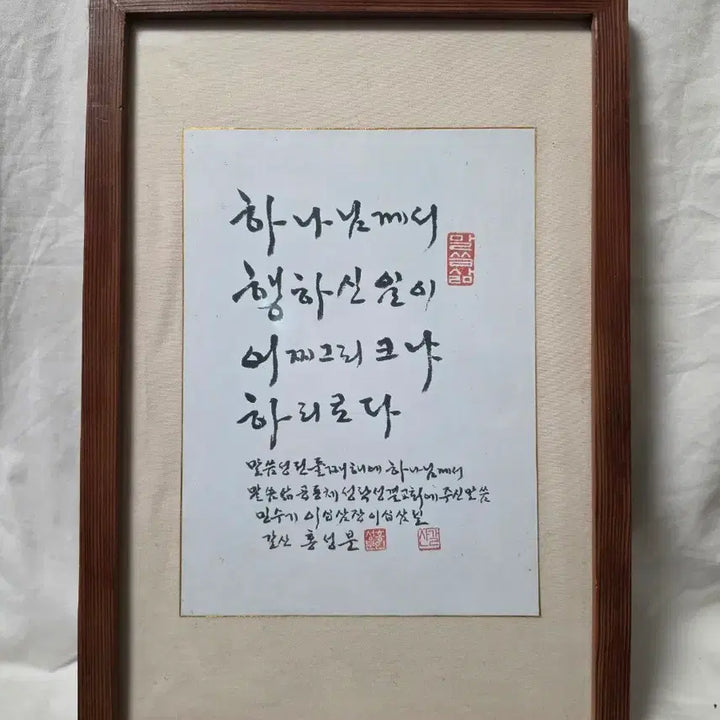 하나님께서
말씀삶
행하신 일이
어찌 그리 크냐
하리로다
말씀성전 둘째 해에 하나님께서
말씀삶공동체성낙성결교회에 주신 말씀
민수기 이십삼장 이십삼절
갈산 홍성문
갈산